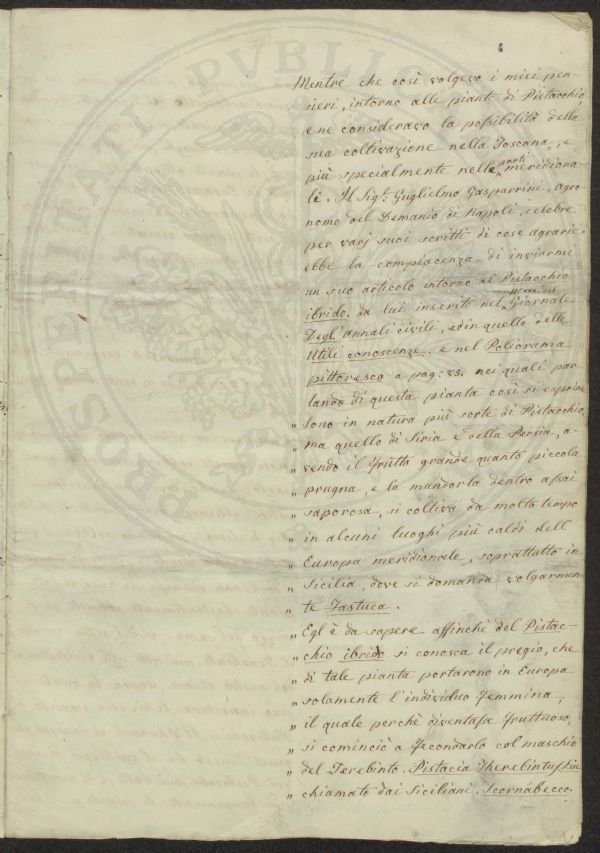 4
Mentre che così volgevo i miei pen-
sieri, intorno alle piante di Pistacchio,
e ne consideravo la possibilità della
sua coltivazione nella Toscana, e
più specialmente nelle parti meridiona-
li. Il Sigr. Guglielmo Gasparrini, agro-
nomo del Demanio di Napoli, celebre
per varj suoi scritti di cose agrarie.
ebbe la compiacenza di inviarmi
un suo articolo intorno al Pistacchio
ibrido, da lui inserito nel Giornale
Degl'Annali civili, ed in quello delle
Utili conoscenze, e nel Poliorama
pittoresco a pag: 23. nei quali par-
lando di questa pianta così si esprime
„ Sono in natura più sorte di Pistacchio,
„ ma quello di Siria e della Persia, a-
„ vendo il frutto grande quanto piccola
„ prugna, e la mandorla dentro assai
„ saporosa, si coltiva da molto tempo
„ in alcuni luoghi più caldi dell'
„ Europa meridionale, soprattutto in
„ Sicilia, dove si domanda volgarmen-
„ te Fastuca.
„ Egl'è da sapere affinchè del Pistac-
„ chio ibrido si conosca il pregio, che
„ di tale pianta portarono in Europa
„ solamente l'individuo femmina,
„ il quale perchè diventasse fruttuoso,
„ si cominciò a fecondarlo col maschio
„ del Terebinto. Pistacia Therebintus Lin
„ chiamato dai Siciliani. Scornabecco.
PROSPERITATI PUBLICAE